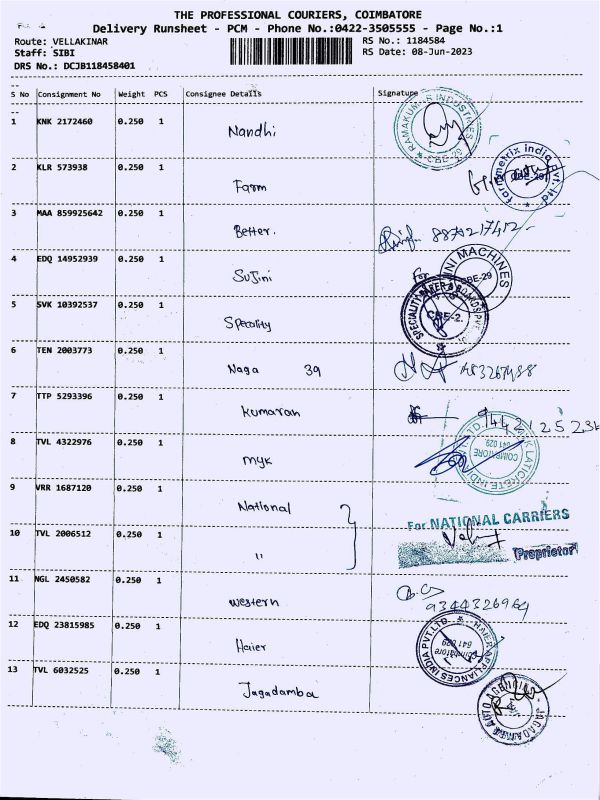 THE PROFESSIONAL COURIERS, COIMBATORE
Delivery Runsheet - PCM - Phone No.:0422-3505555 - Page No.:1
Route: VELLAKINAR RS No.: 1184584
Staff: SIBI RS Date: 08-Jun-2023
DRS No.: DCJB118458401
S No Consignment No Weight PCS Consignee Details Signature
1 KNK 2172460 0.250 1 Nandhi RAMAKUMAR INDUSTRIES CBE-29
2 KLR 573938 0.250 1 Farm farmmetrix india Pvt. Ltd CBE-29
3 MAA 859925642 0.250 1 Better.
4 EDQ 14952939 0.250 1 Sujini For MACHINES CBE-29
5 SVK 10392537 0.250 1 Specality CBE-2.
6 TEN 2003773 0.250 1 Naga 39
7 TTP 5293396 0.250 1 Kumaran
8 TVL 4322976 0.250 1 myk COIMBATORE 641 029
9 VRR 1687120 0.250 1 National For NATIONAL CARRIERS
10 TVL 2006512 0.250 1 " Proprietor
11 NGL 2450582 0.250 1 Western 9344326964
12 EDQ 23815985 0.250 1 Haier HAIER APPLIANCES INDIA PVT. LTD Coimbatore 641 029
13 TVL 6032525 0.250 1 Jagadamba JAGADAMBA AUTO AGENCIES